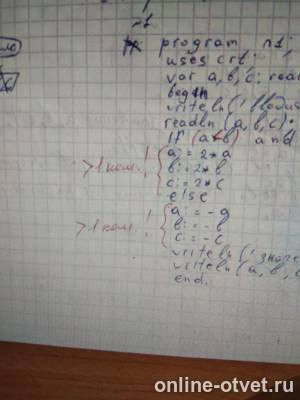 №1
program n1;
uses crt;
var a, b, c: rea
begin
writeln('
readln (a, b, c);
If (a<b) and
a: = 2*a
>1 ком. !
b: = 2*b
c: = 2*c
else
a: = -a
>1 ком. !
b: = -b
c: = -c
writeln('значе
writeln(a, b,
end.
online-otvet.ru